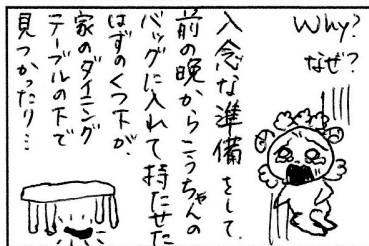 Why?
なぜ?
入念な準備をして、
前の晩からこうちゃんの
バッグに入れて持たせた
はずのくつ下が、
家のダイニング
テーブルの下で
見つかったり…